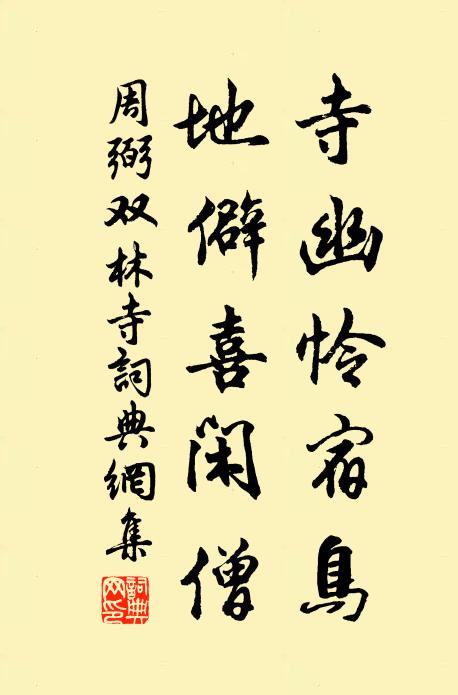 寺幽怜宿鳥
地僻喜闲僧
周弼双林寺詞典網集
詞典
网印